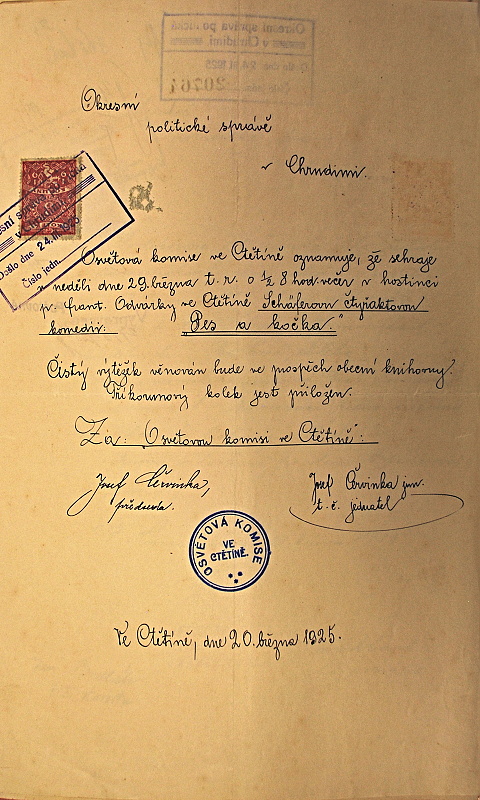 Okresní
politické správě
v Chrudimi.
Došlo dne 24.III.1925
Číslo jedn.
Osvětová komise ve Ctětíně oznamuje, že sehraje
v neděli dne 29. března t. r. o ½ 8 hod. večer v hostinci
p. Frant. Odvárky ve Ctětíně Schäferovu čtyřaktovou
komedii: "Pes a kočka."
Čistý výtěžek věnován bude ve prospěch obecní knihovny.
Tříkorunový kolek jest přiložen.
Za: "Osvětovou komisi ve Ctětíně":
Josef Červinka, Josef Červinka jun.
předseda. t. č. jednatel
OSVĚTOVÁ KOMISE
VE
CTĚTÍNĚ.
Ve Ctětíně, dne 20. března 1925.